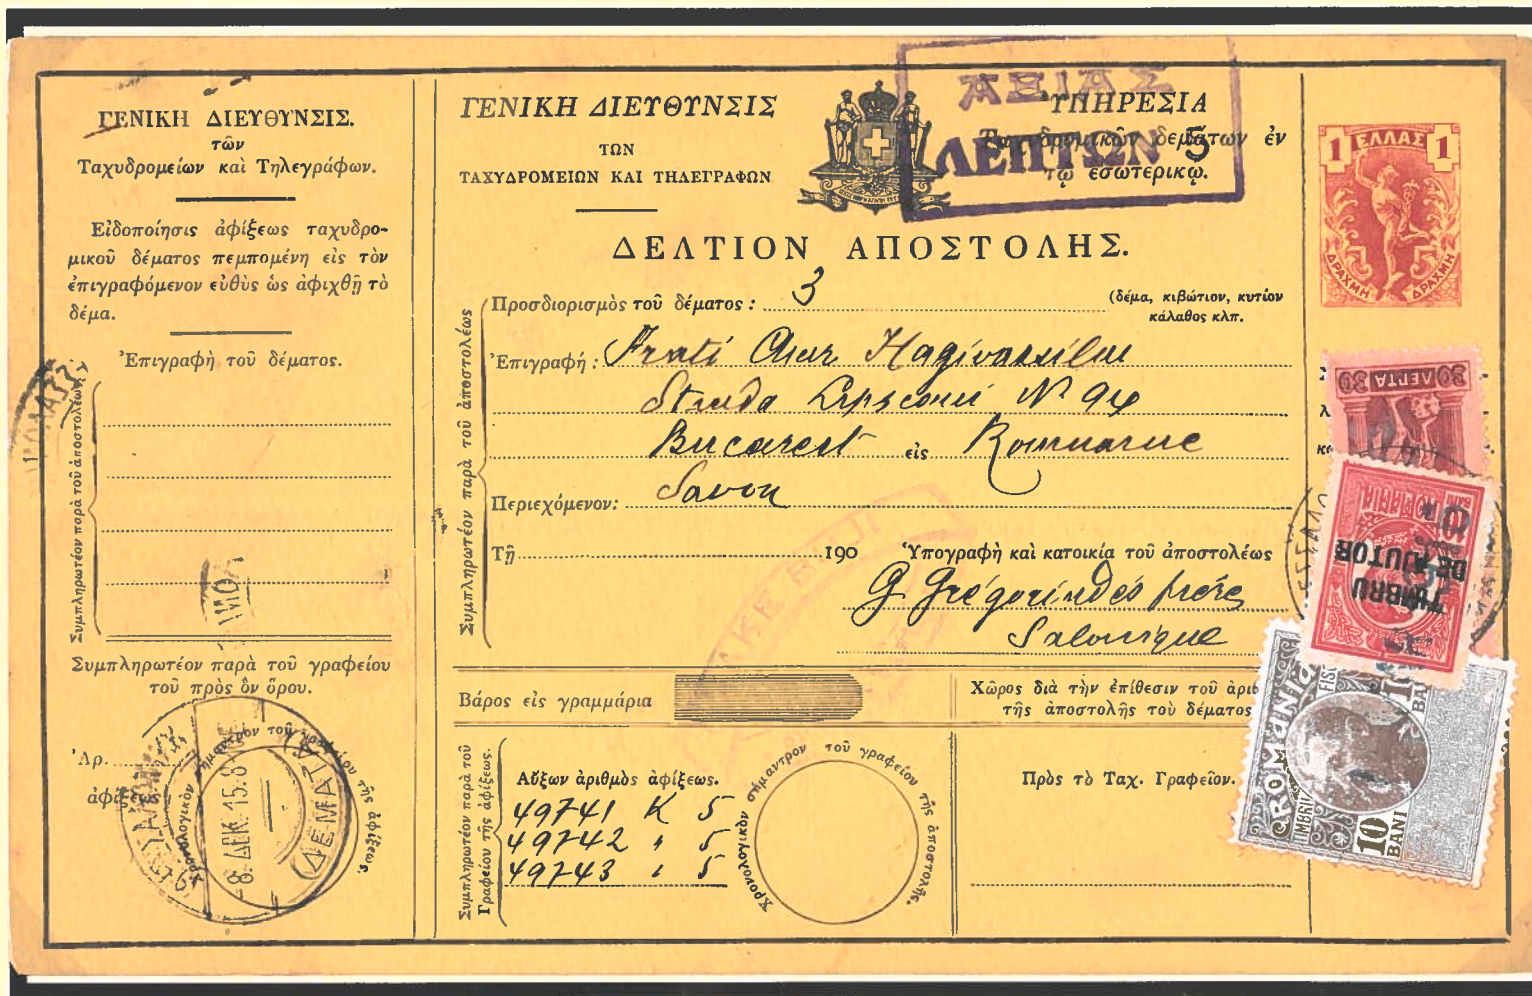 ΓΕΝΙΚΗ ΔΙΕΥΘΥΝΣΙΣ.
τῶν
Ταχυδρομείων καὶ Τηλεγράφων.
Εἰδοποίησις ἀφίξεως ταχυδρο-
μικοῦ δέματος πεμπομένη εἰς τὸν
ἐπιγραφόμενον εὐθὺς ὡς ἀφιχθῇ τὸ
δέμα.
Ἐπιγραφὴ τοῦ δέματος.
Συμπληρωτέον παρὰ τοῦ ἀποστολέως
Συμπληρωτέον παρὰ τοῦ γραφείου
τοῦ πρὸς ὃν ὅρου.
Ἀρ.
ἀφίξεως
Χρονολογικὸν σήμαντρον τοῦ γραφείου τῆς ἀφίξεως.
8. ΔΕΚ. 15. 8
(ΔΕΜΑΤΑ)
ΓΕΝΙΚΗ ΔΙΕΥΘΥΝΣΙΣ
ΤΩΝ
ΤΑΧΥΔΡΟΜΕΙΩΝ ΚΑΙ ΤΗΛΕΓΡΑΦΩΝ
ΥΠΗΡΕΣΙΑ
Ταχυδρομικῶν δεμάτων ἐν
τῷ ἐσωτερικῷ.
ΑΞΙΑΣ
ΛΕΠΤΩΝ 5
ΔΕΛΤΙΟΝ ΑΠΟΣΤΟΛΗΣ.
Συμπληρωτέον παρὰ τοῦ ἀποστολέως
Προσδιορισμὸς τοῦ δέματος : 3
(δέμα, κιβώτιον, κυτίον
κάλαθος κλπ.
Ἐπιγραφή : Frati
Strada Lipscanii No 94
Bucarest εἰς Roumanie
Περιεχόμενον: Savon
Τῇ 190
Ὑπογραφὴ καὶ κατοικία τοῦ ἀποστολέως
G. Grégoriadès frères
Salonique
Βάρος εἰς γραμμάρια
Χῶρος διὰ τὴν ἐπίθεσιν τοῦ ἀρι
τῆς ἀποστολῆς τοῦ δέματος
Συμπληρωτέον παρὰ τοῦ
Γραφείου τῆς ἀφίξεως.
Αὔξων ἀριθμὸς ἀφίξεως.
49741 K 5
49742 " 5
49743 " 5
Χρονολογικὸν σήμαντρον τοῦ γραφείου τῆς ἀποστολῆς.
Πρὸς τὸ Ταχ. Γραφεῖον.
1 ΕΛΛΑΣ 1
ΔΡΑΧΜΗ ΔΡΑΧΜΗ
30 ΛΕΠΤΑ 30
TIMBRU
DE AJUTOR
ROMANIA
10
BANI